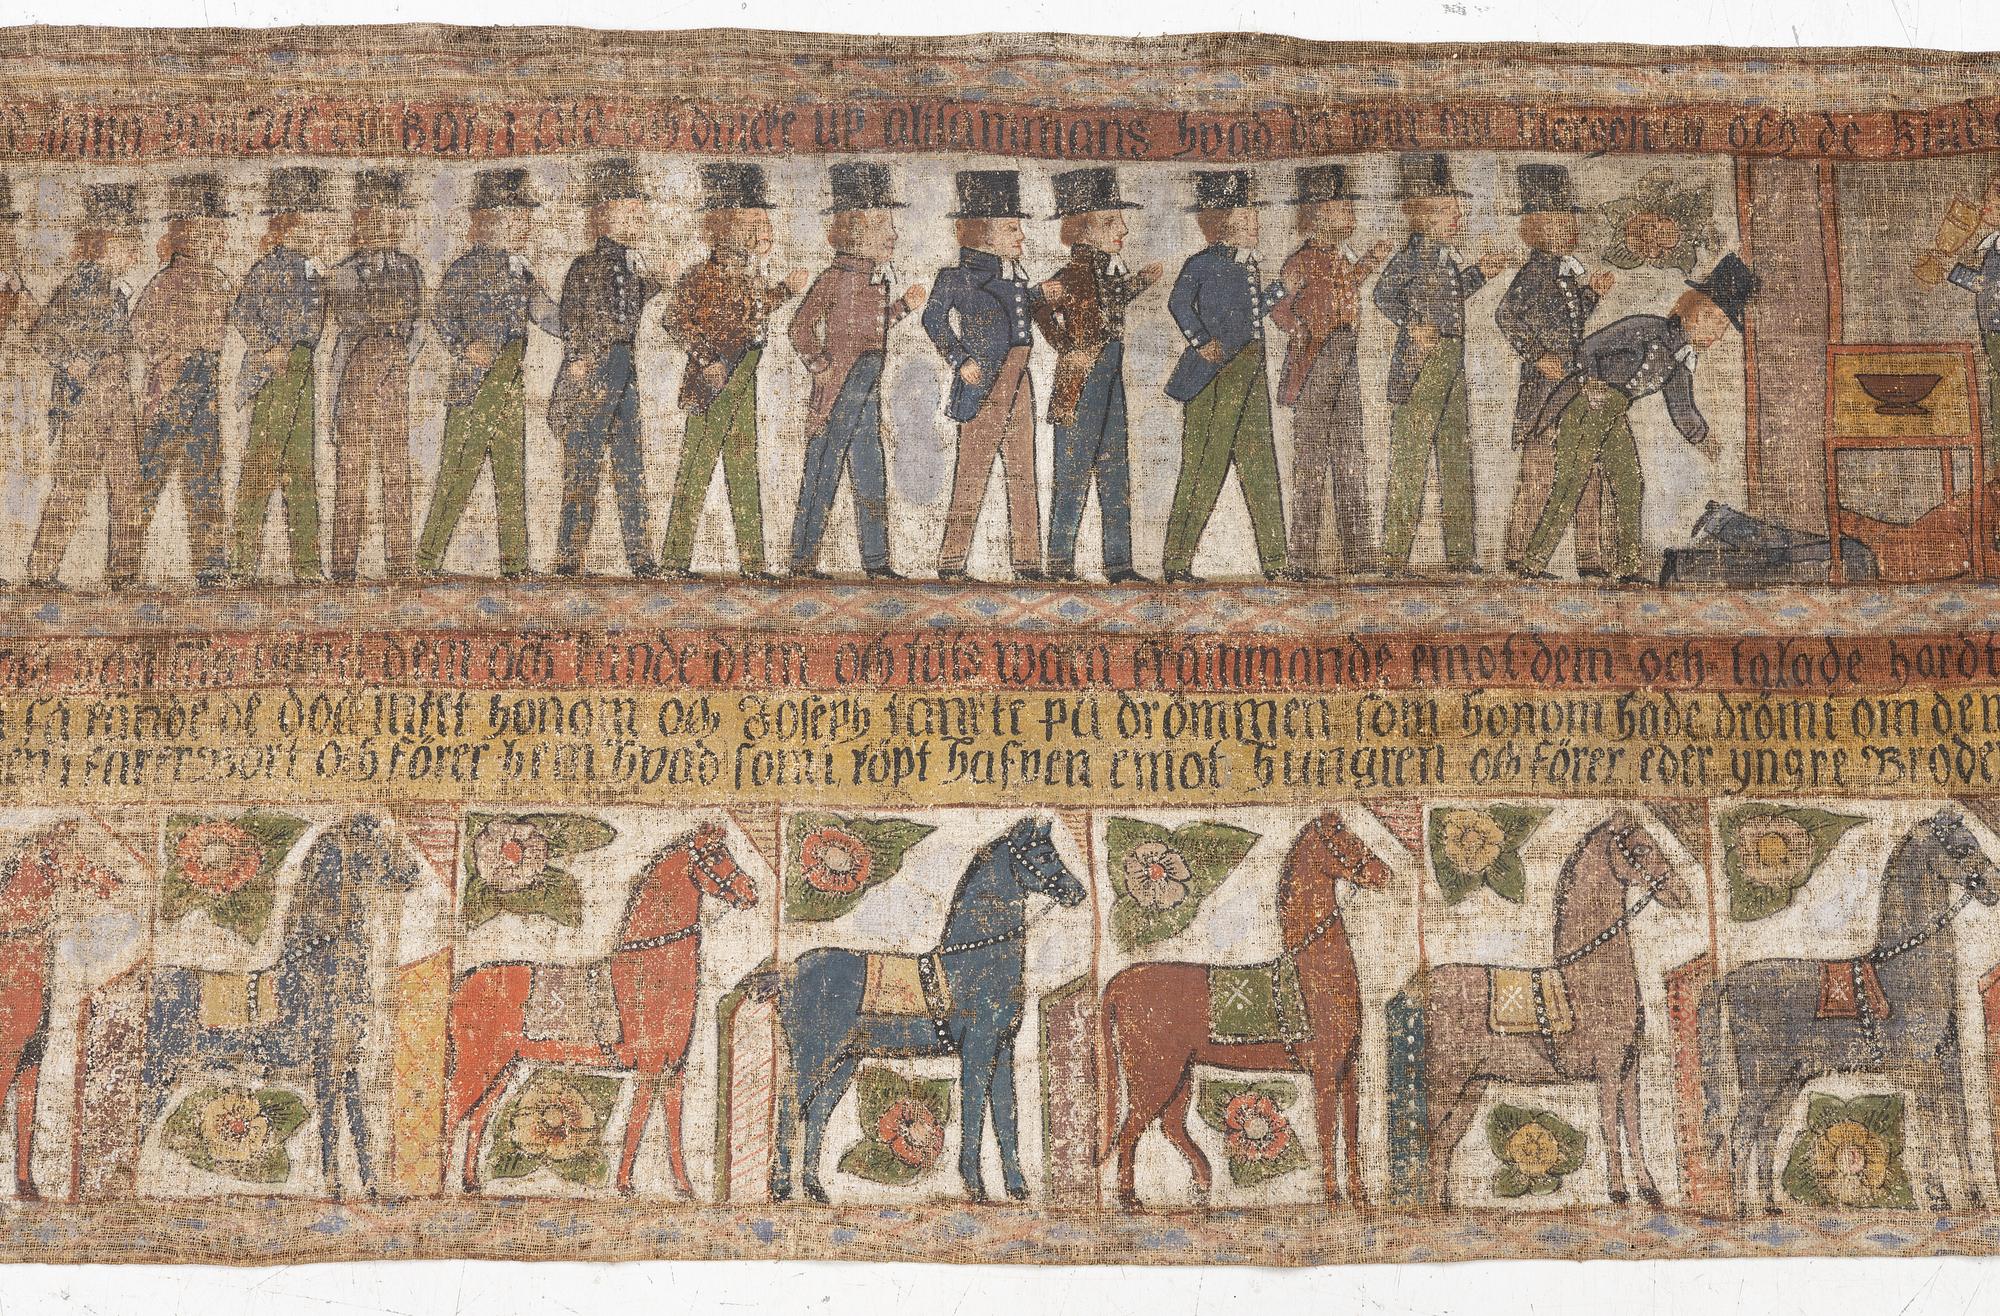 och drucke up altsammans hvad der war och de
dem och kände dem och lats wara främmande emot dem och talade hardt
så kände de dock intet honom och Joseph tänkte på drömmen som honom hade drömt om dem
Bort och förer hem hvad som i köpt hafven emot hungren och förer eder yngre Broder